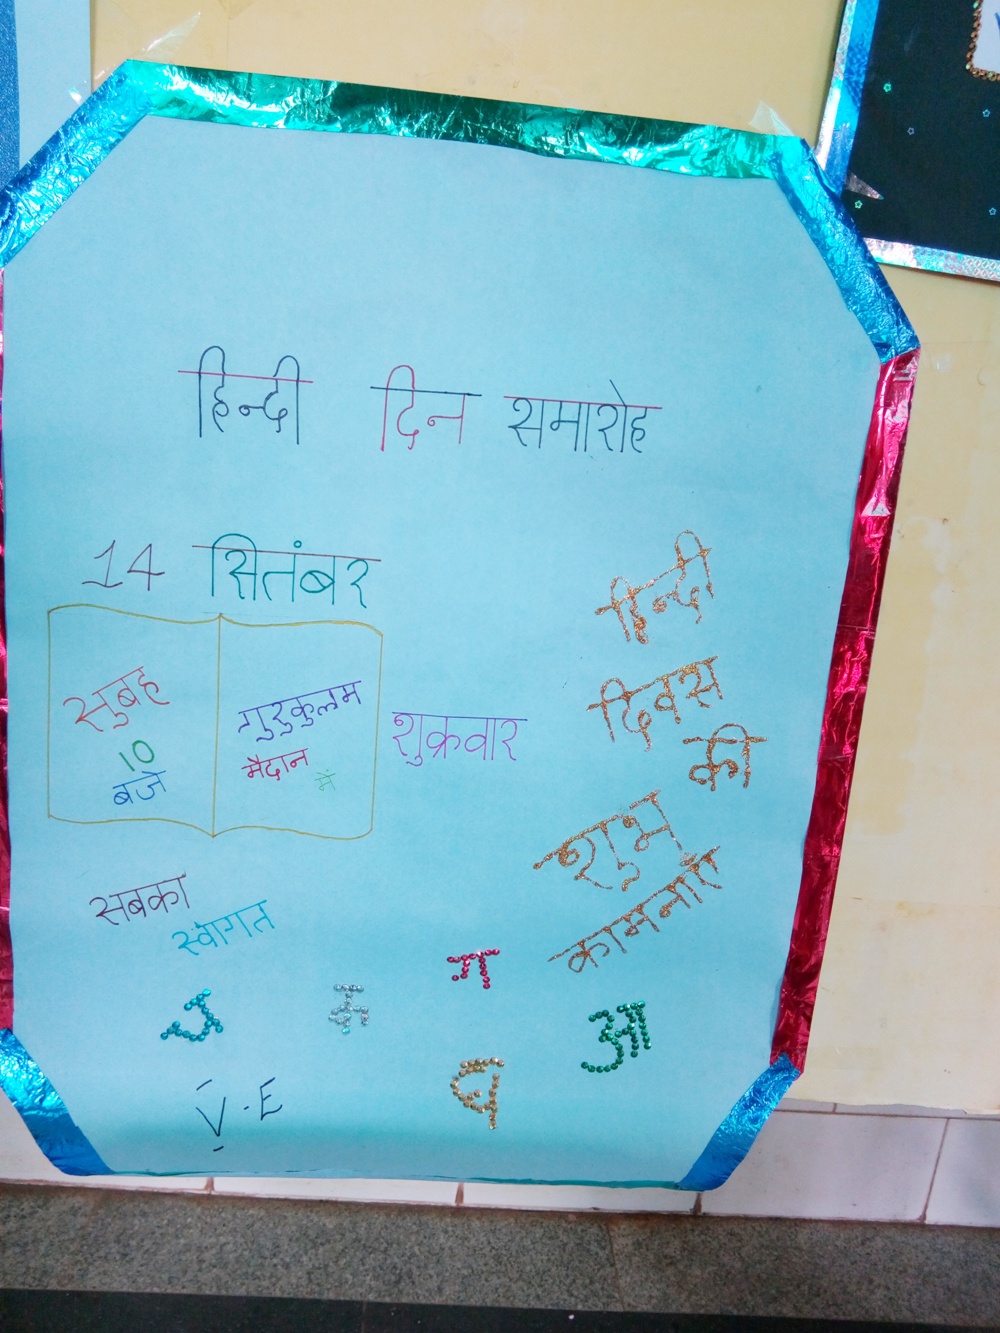 हिन्दी दिन समारोह
14 सितंबर
सुबह
10
बजे
गुरुकुलम
मैदान में
शुक्रवार
हिन्दी
दिवस
की
शुभ
कामनाएँ
सबका
स्वागत
ज
म
ग
आ
घ
V.E